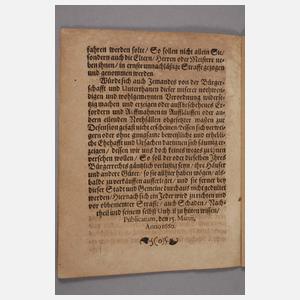 fahren werden solte / So sollen nicht allein Sie /
sondern auch die Eltern / Herren oder Meistere ne-
ben ihnen / in ernste unnachläßige Straffe gezogen
und genommen werden.
Würde sich auch Jemandes von der Bürger-
schafft und Unterthanen dieser unserer nothwen-
digen und wohlgemeinten Verordnung widerse-
tzig machen und erzeigen oder auff beschehenes Er-
fordern und Auffmahnen in Auffläufften oder an-
dern eilenden Nothfällen obgesetzter massen zur
Defension gefast nicht erscheinen / dessen sich verwei-
gern oder ohne gnugsame beweißliche und erhebli-
che Ehehafft und Ursachen darinnen sich säumig er-
zeigen / dessen wir uns doch keines weges zu ihnen
versehen wollen / So soll der oder dieselben Ihres
Bürgerrechts gäntzlich verlustig seyn / ihre Häuser
und andere Güter / so sie allhier haben mögen / als-
halde zuverkäuffen aufferleget / und sie ferner bey
dieser Stadt und Gemeine durchaus nicht geduldet
werden / Hiernach sich ein Jeder wird zu richten und
vor obbemeldter Straffe / auch Schaden / Nach-
theil und seinem selbst Unheil zu hüten wissen /
Publicatum, den 15. Martii,
Anno 1660.